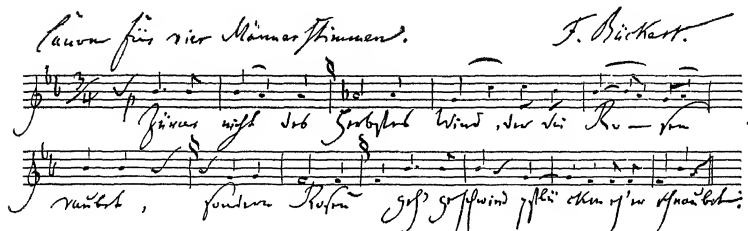 Canon für vier Männerstimmen. F. Rückert.
3/4
p
Zürne nicht des Herbstes Wind, der die Ro—sen
raubet, sondern Rosen geh' geschwind pflücken eh' er schnaubet.